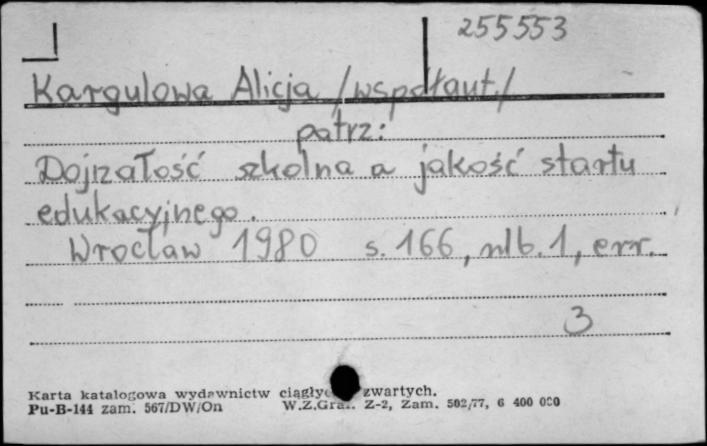 255553
Kargulowa Alicja /współaut./
patrz:
Dojrzałość szkolna a jakość startu
edukacyjnego.
Wrocław 1980 s. 166, nlb. 1, err.
3
Karta katalogowa wydawnictw zwartych.
Pu-B-144 zam. 567/DW/On W.Z.Graf. Z-2, Zam. 502/77, 6 400 000